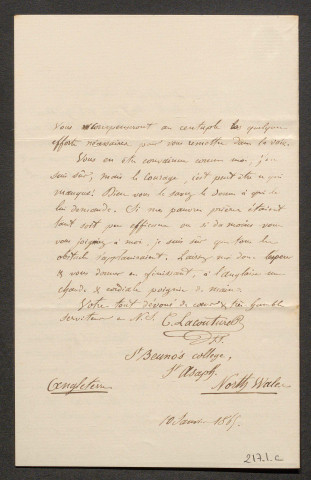 vous récompenseront au centuple les quelques
efforts nécessaires pour vous remettre dans la voie.
Vous en êtes convaincu comme moi, j'en
suis sûr; mais le courage, c'est peut être ce qui
manque! Dieu vous le savez le donne à qui le
lui demande. Si mes pauvres prières étaient
tant soit peu efficaces ou si du moins vous
vous joignez à moi, je suis sûr que tous les
obstacles s'applaniraient. Laissez moi donc
& vous donner en finissant, à l'anglaise une
chaude & cordiale poignée de mains.
Votre tout dévoué de cœur & très humble
serviteur en N. S. C. Lacouture
St Beuno's college,
St Asaph.
(Angleterre North Wales
10
217.1.c